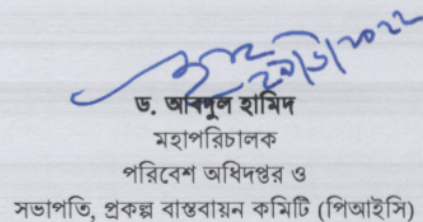 ড. আবদুল হামিদ
মহাপরিচালক
পরিবেশ অধিদপ্তর ও
সভাপতি, প্রকল্প বাস্তবায়ন কমিটি (পিআইসি)